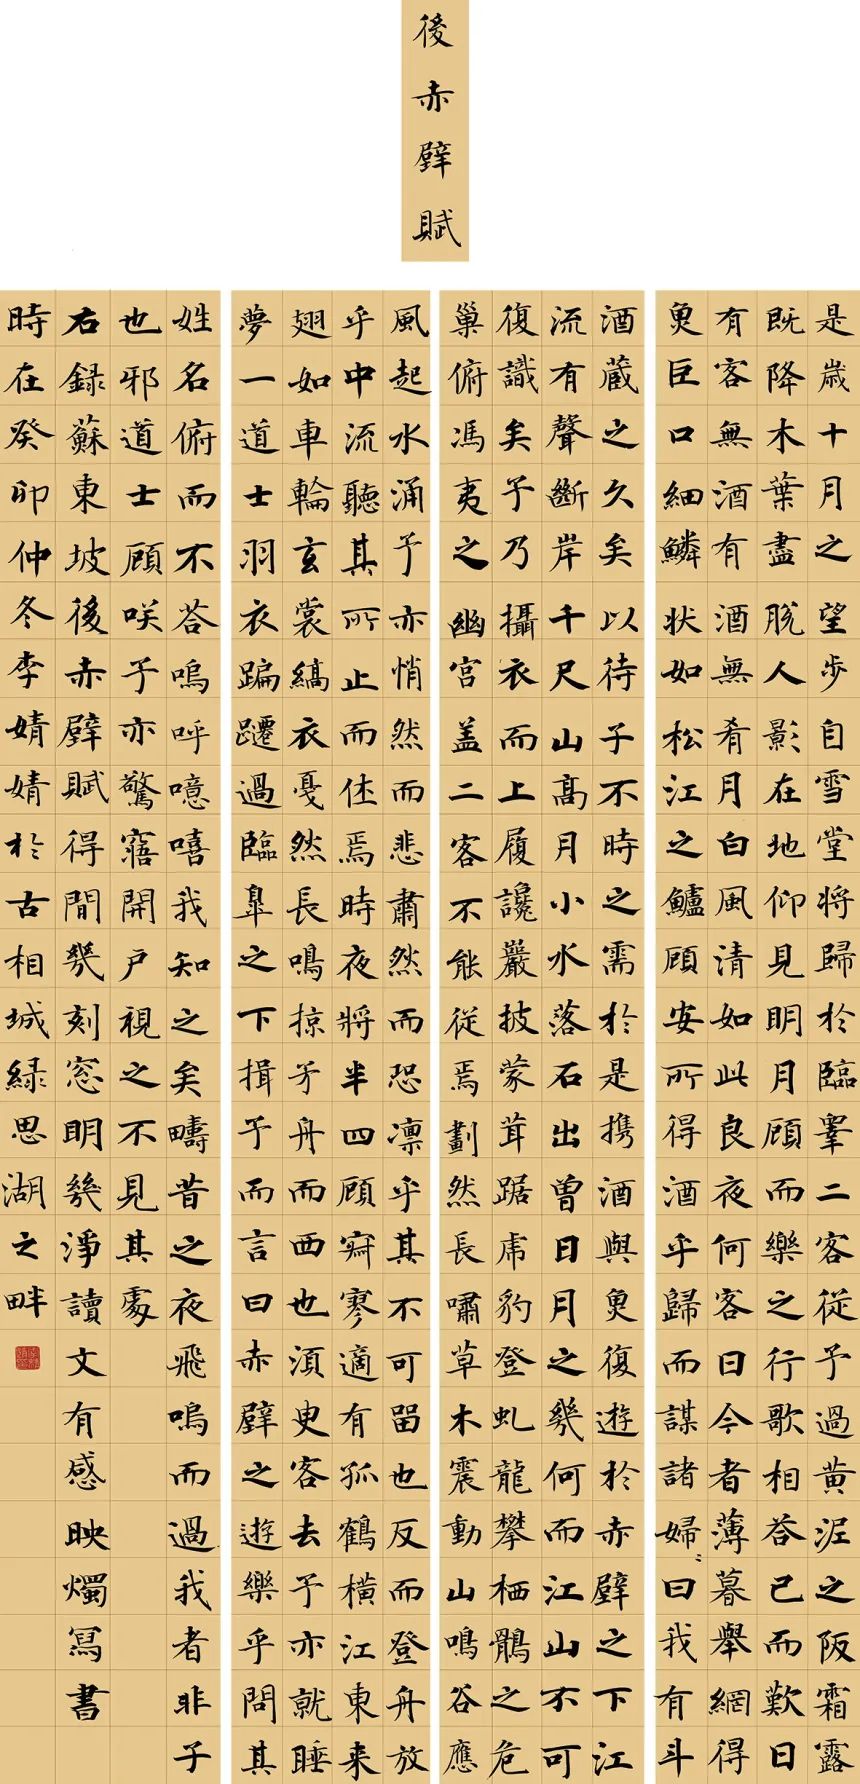 後赤壁賦
是歲十月之望步自雪堂將歸於臨睪二客從予過黃泥之阪霜露
既降木葉盡脫人影在地仰見明月顧而樂之行歌相答已而歎曰
有客無酒有酒無肴月白風清如此良夜何客曰今者薄暮舉網得
魚巨口細鱗狀如松江之鱸顧安所得酒乎歸而謀諸婦〻曰我有斗
酒藏之久矣以待子不時之需於是携酒與魚復遊於赤壁之下江
流有聲斷岸千尺山高月小水落石出曾日月之幾何而江山不可
復識矣予乃攝衣而上履讒巖披蒙茸踞虎豹登虬龍攀栖鶻之危
巢俯馮夷之幽宮盖二客不能從焉劃然長嘯草木震動山鳴谷應
風起水涌予亦悄然而悲肅然而恐凛乎其不可留也反而登舟放
乎中流聽其所止而休焉時夜將半四顧寂寥適有孤鶴橫江東来
翅如車輪玄裳縞衣戛然長鳴掠予舟而西也須臾客去予亦就睡
夢一道士羽衣蹁躚過臨皋之下揖予而言曰赤壁之遊樂乎問其
姓名俯而不荅嗚呼噫嘻我知之矣疇昔之夜飛鳴而過我者非子
也邪道士顧咲予亦驚寤開戶視之不見其處
右録蘇東坡後赤壁賦得間幾刻窓明幾淨讀文有感映燭寫書
時在癸卯仲冬李婧婧於古相城緑思湖之畔